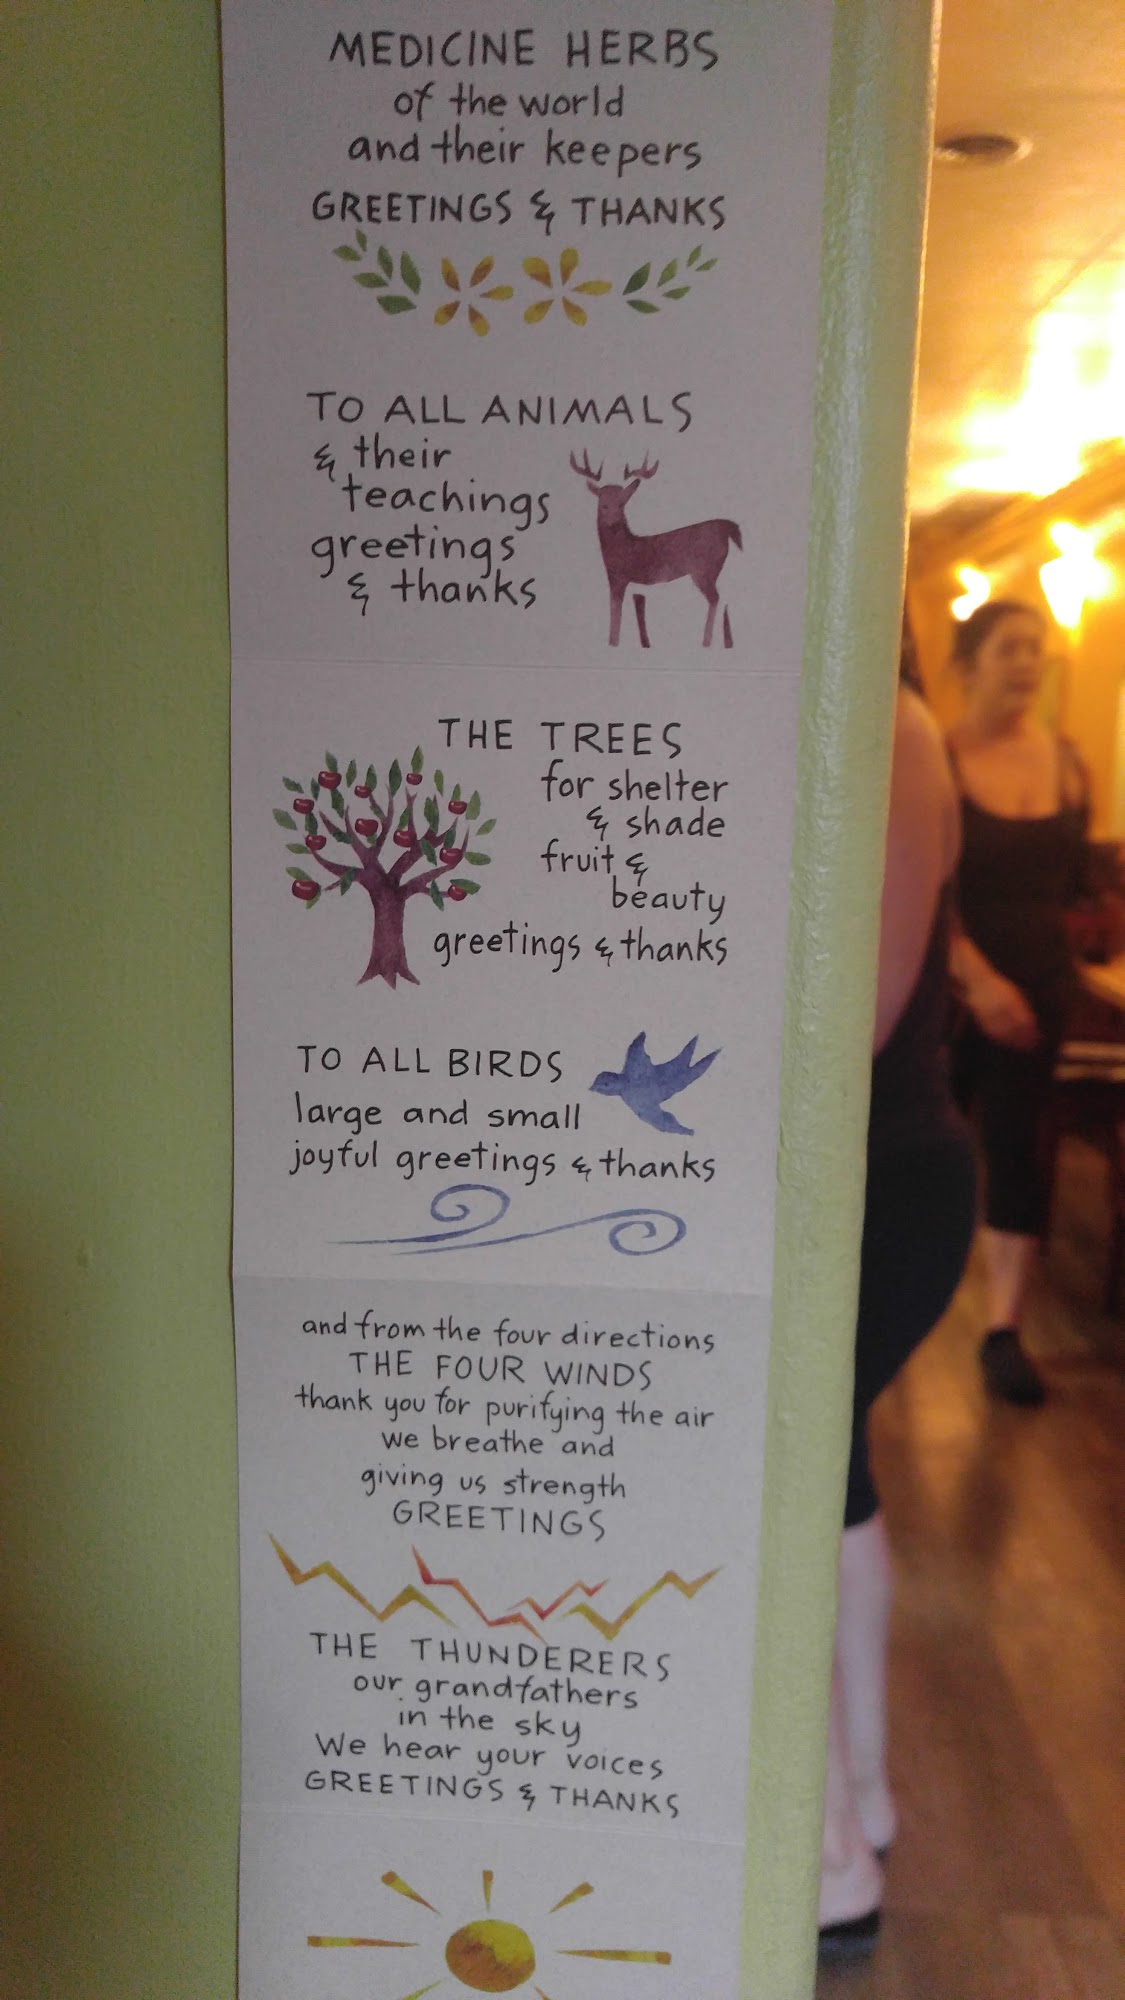 MEDICINE HERBS
of the world
and their keepers
GREETINGS & THANKS
TO ALL ANIMALS
& their
teachings
greetings
& thanks
THE TREES
for shelter
& shade
fruit &
beauty
greetings & thanks
TO ALL BIRDS
large and small
joyful greetings & thanks
and from the four directions
THE FOUR WINDS
thank you for purifying the air
we breathe and
giving us strength
GREETINGS
THE THUNDERERS
our grandfathers
in the sky
We hear your voices
GREETINGS & THANKS